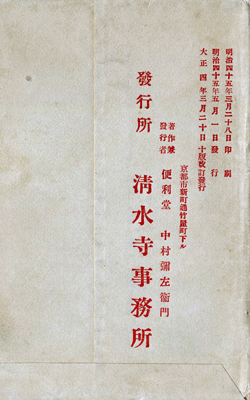 明治四十五年三月二十八日印刷
明治四十五年五月一日發行
大正四年三月二十日十版改訂發行
京都市新町通竹屋町下ル
著作兼
發行者
便利堂 中村彌左衞門
發行所 淸水寺事務所